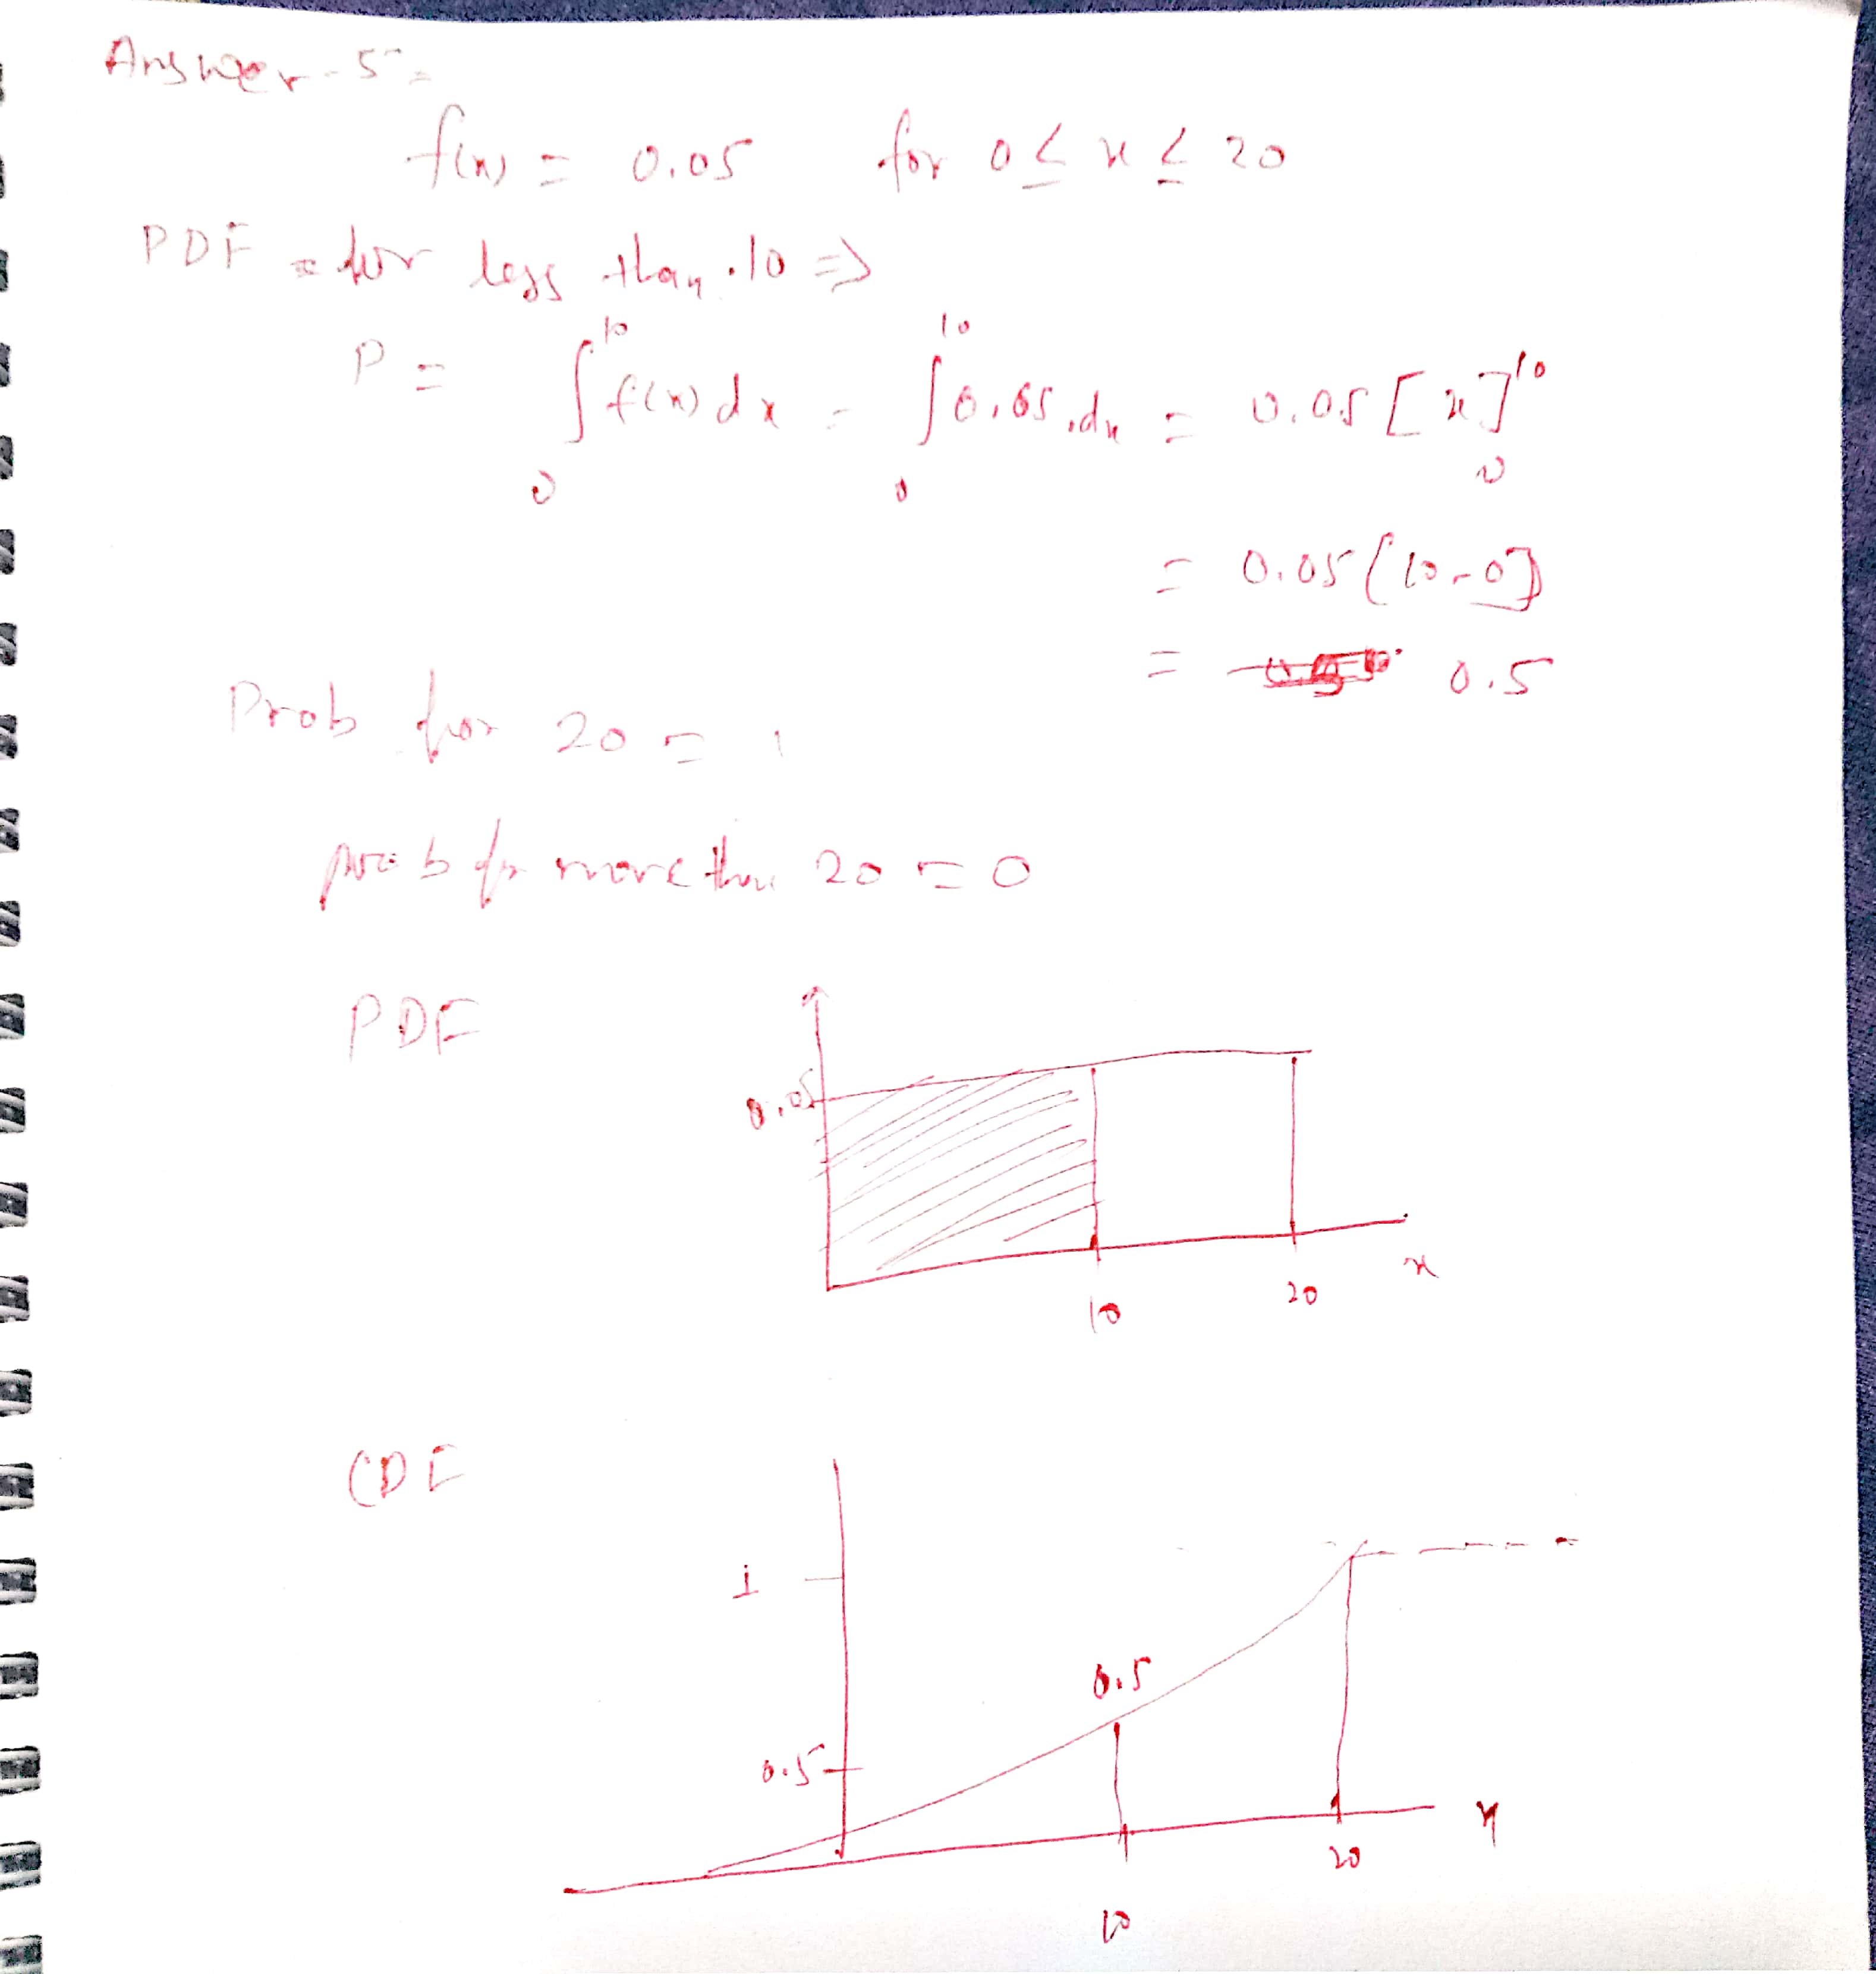 Answer - 5 =
f(x) = 0.05 for 0 ≤ x ≤ 20
PDF = for less than .10 ⇒
P = ∫₀¹⁰ f(x) dx = ∫₀¹⁰ 0.05 .dx = 0.05 [x]₀¹⁰
= 0.05 [10-0]
= 0.5
Prob for 20 = 1
prob for more than 20 = 0
PDF
0.05
10
20
x
CDF
1
0.5
0.5
10
20
x